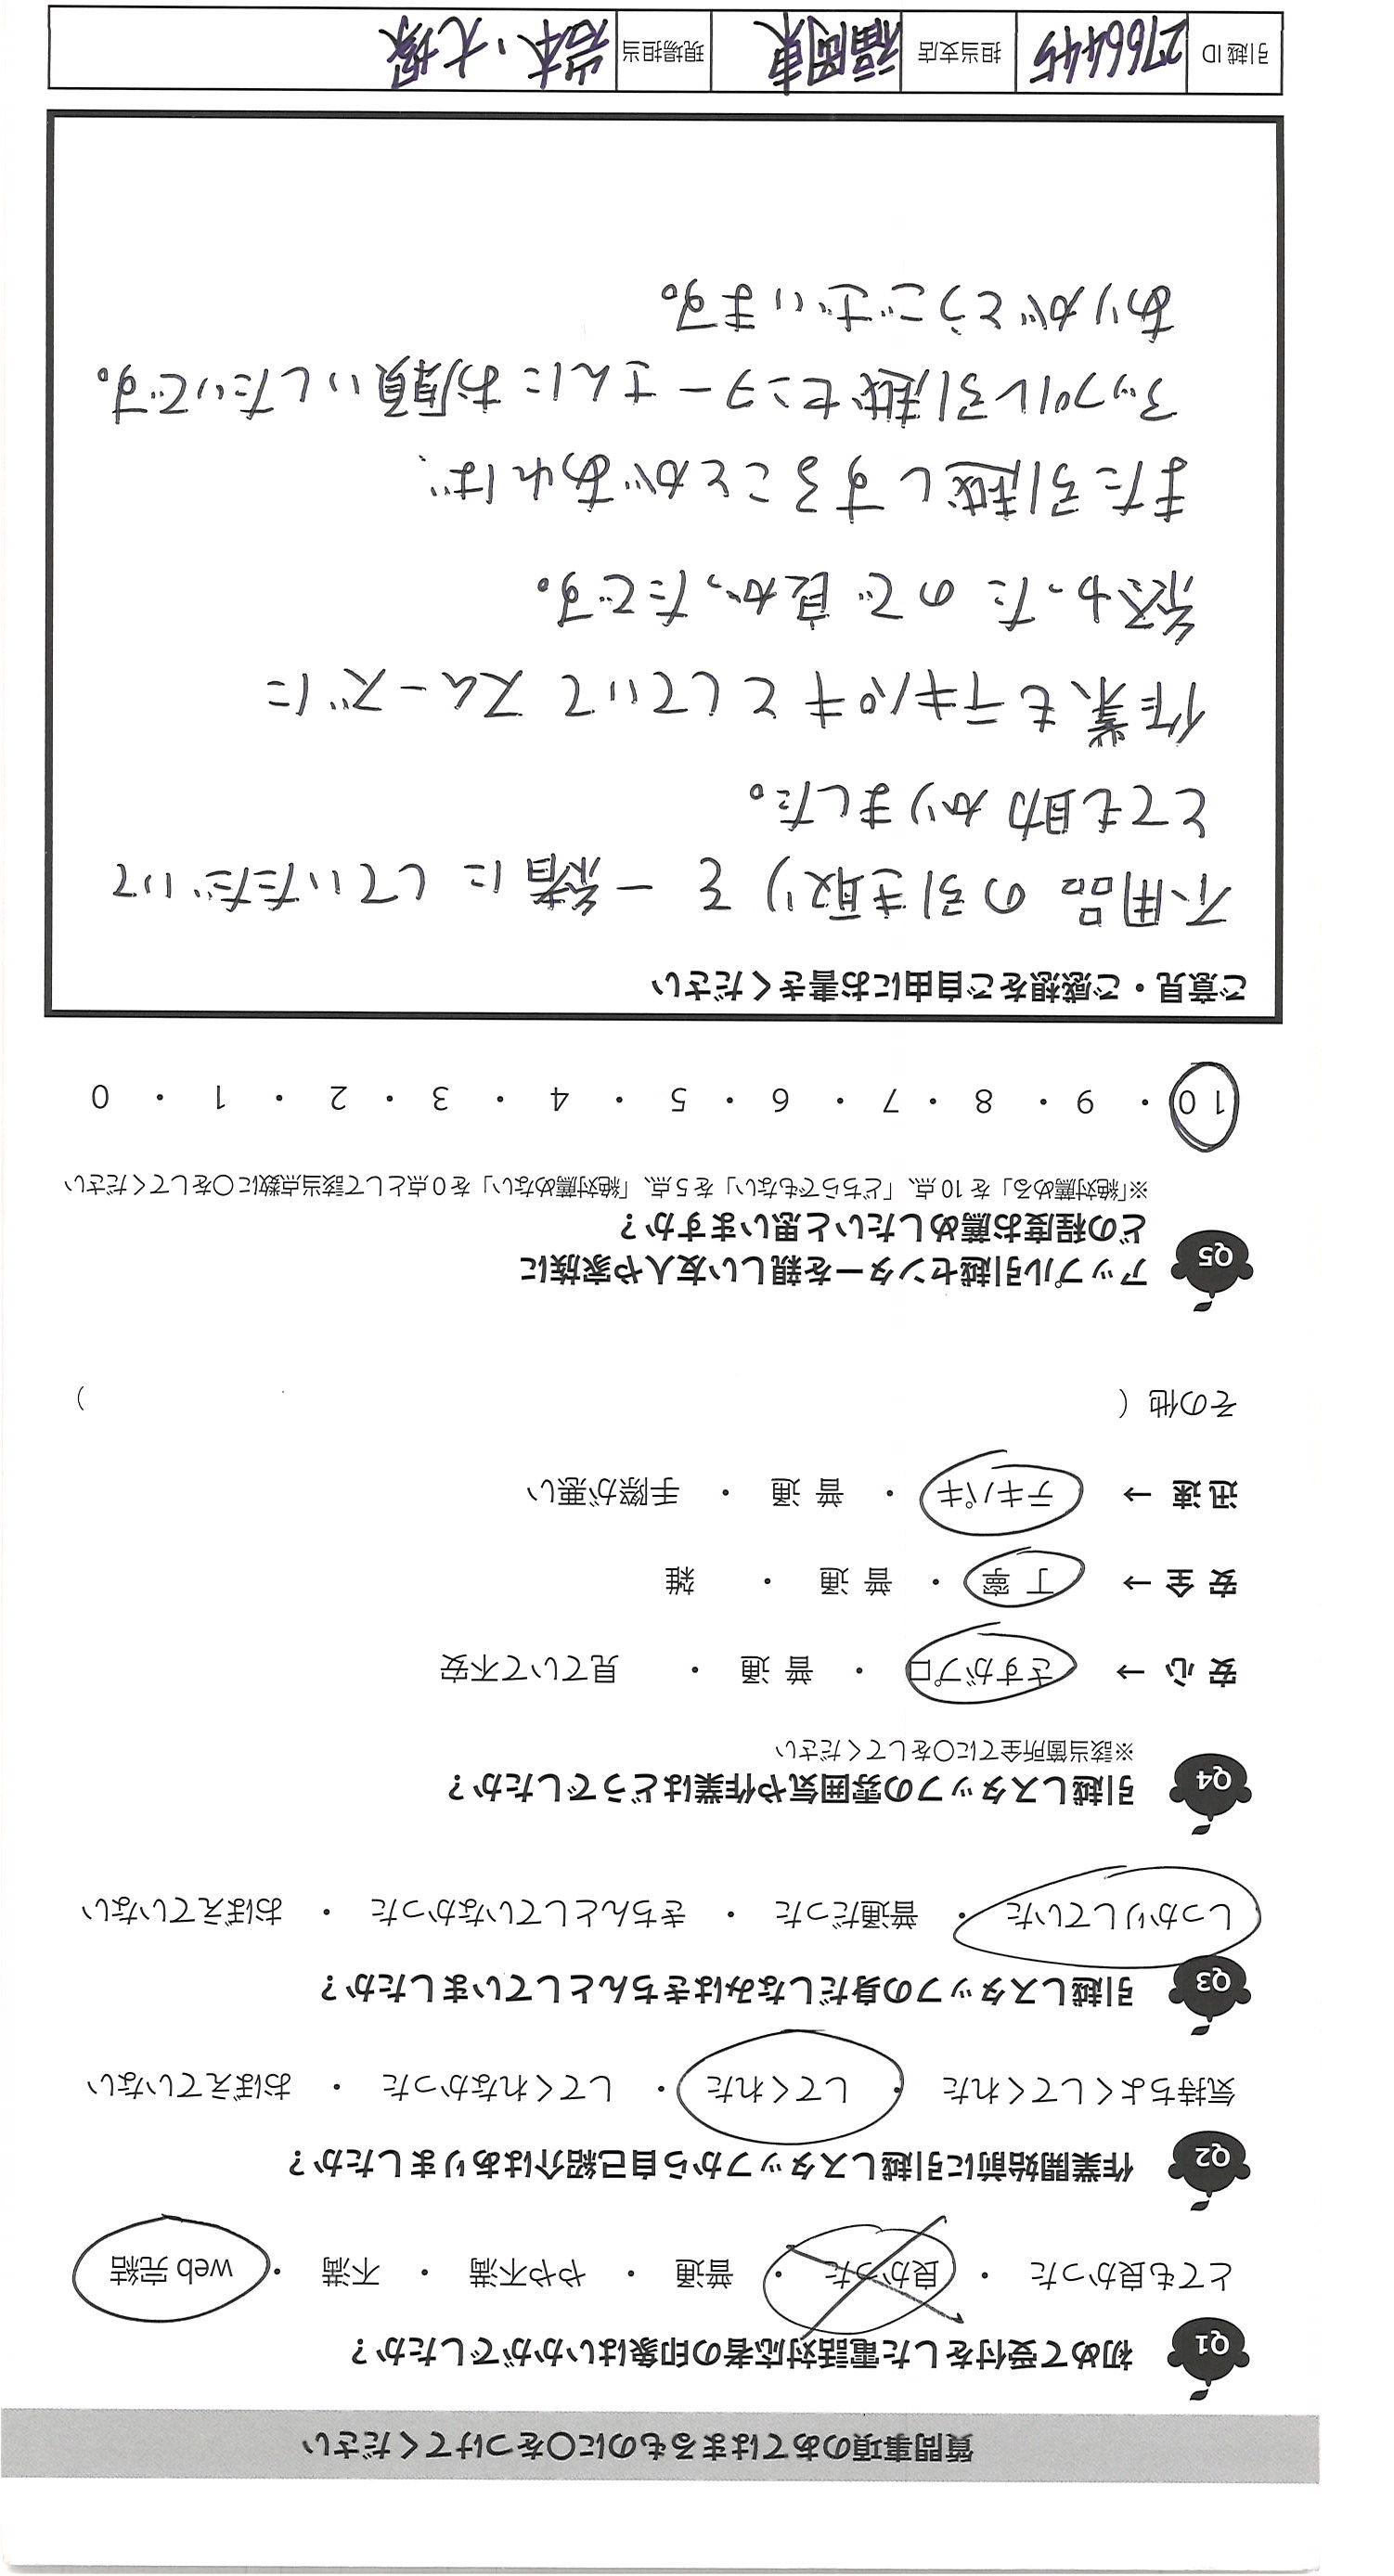 質問事項のあてはまるものに〇をつけてください
Q1 初めて受付をした電話対応者の印象はいかがでしたか？
とても良かった ・ 良かった ・ 普通 ・ やや不満 ・ 不満 ・ web 完結
Q2 作業開始前に引越しスタッフから自己紹介はありましたか？
気持ちよくしてくれた ・ してくれた ・ してくれなかった ・ おぼえていない
Q3 引越しスタッフの身だしなみはきちんとしていましたか？
しっかりしていた ・ 普通だった ・ きちんとしていなかった ・ おぼえていない
Q4 引越しスタッフの雰囲気や作業はどうでしたか？
※該当箇所全てに〇をしてください
安 心 → さすがプロ ・ 普 通 ・ 見ていて不安
安 全 → 丁 寧 ・ 普 通 ・ 雑
迅 速 → テキパキ ・ 普 通 ・ 手際が悪い
その他（ ）
Q5 アップル引越センターを親しい友人や家族に
どの程度お薦めしたいと思いますか？
※「絶対薦める」を 10 点、「どちらでもない」を 5 点、「絶対薦めない」を 0 点として該当点数に〇をしてください
10 ・ 9 ・ 8 ・ 7 ・ 6 ・ 5 ・ 4 ・ 3 ・ 2 ・ 1 ・ 0
ご意見・ご感想をご自由にお書きください
不用品 の引き取り を 一緒に していただいて
とても助かりました。
作業もテキパキとしていて スムーズに
終わった ので 良かったです。
また引越し することが あれば、
アップル引越センターさんにお願いしたいです。
ありがとうございます。
引越 ID 2766445 担当支店 福岡東 現場担当 岩本、大塚